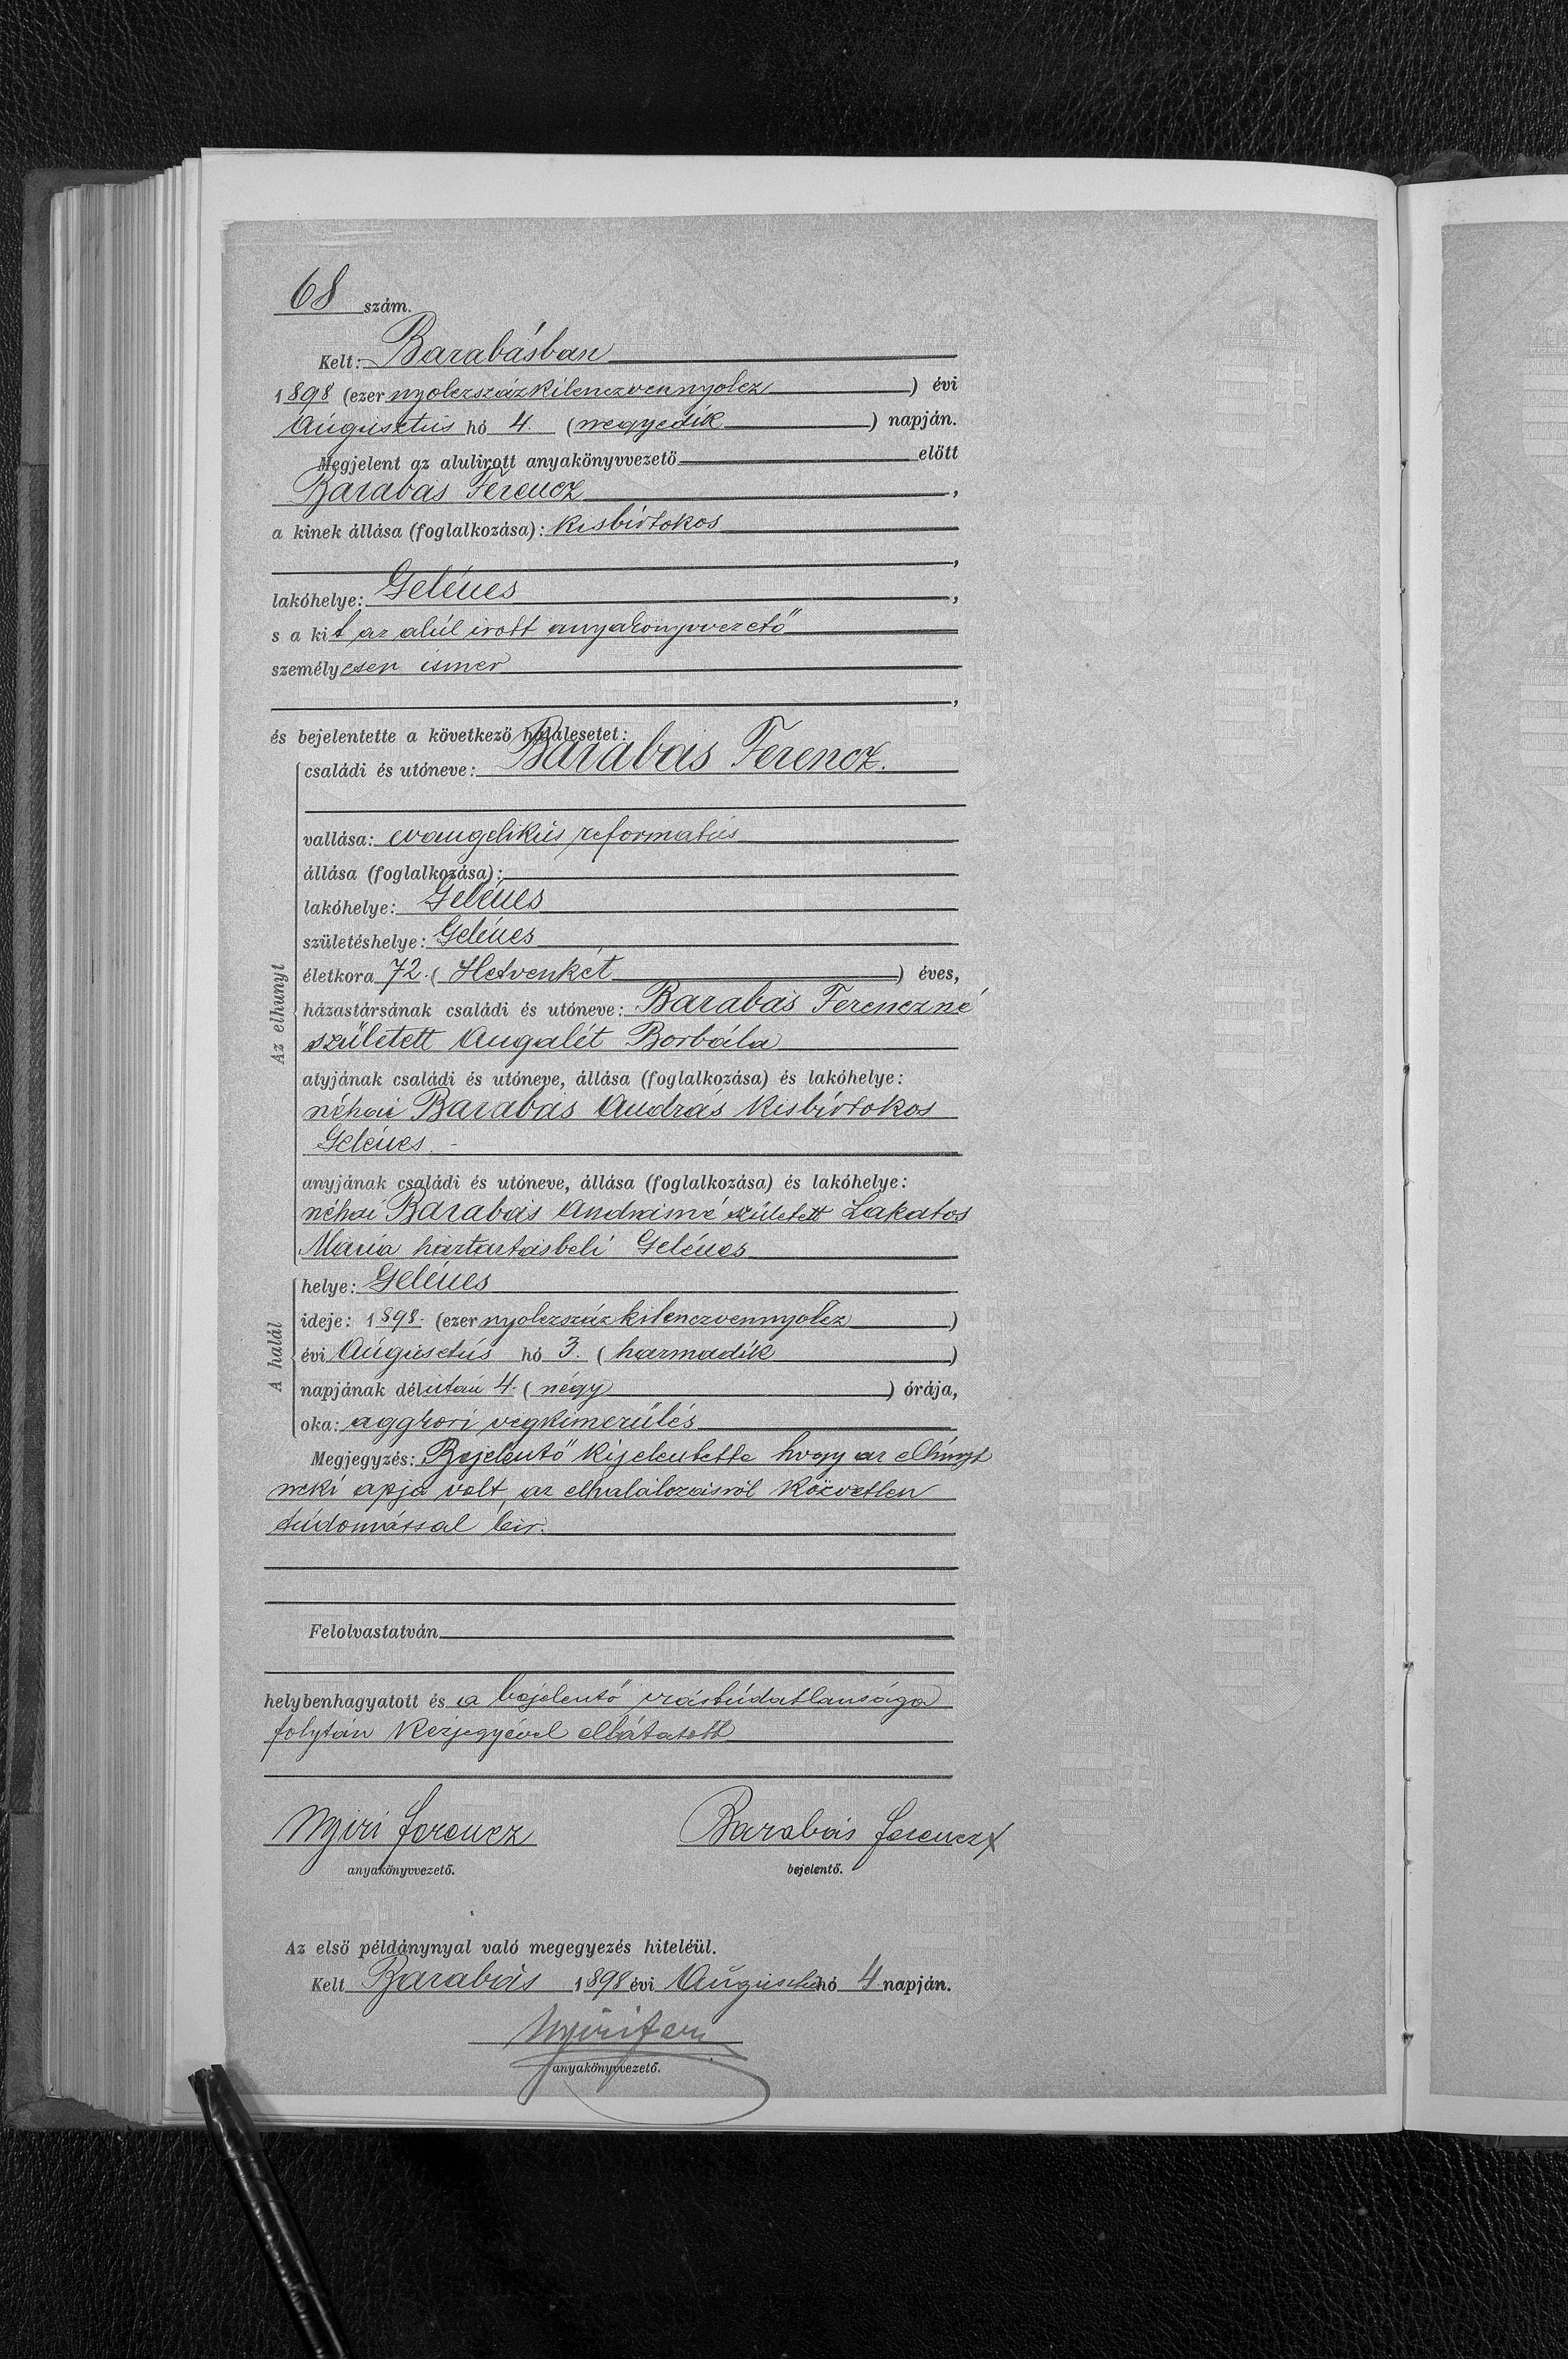 68 szám.
Kelt: Barabásban
1898 (ezer nyolczszázkilenczvennyolcz) évi
Augusztus hó 4. (negyedik) napján.
Megjelent az alulirott anyakönyvvezető előtt
Barabás Ferencz,
a kinek állása (foglalkozása): kisbirtokos
,
lakóhelye: Gelénes,
s a kit az alúl irott anyakönyvvezető
személyesen ismer
,
és bejelentette a következő halálesetet:
Az elhunyt
családi és utóneve: Barabás Ferencz.
vallása: evangelikus reformatus
állása (foglalkozása):
lakóhelye: Gelénes
születéshelye: Gelénes
életkora 72. (Hetvenkét) éves,
házastársának családi és utóneve: Barabás Ferenczné
született Angalét Borbála
atyjának családi és utóneve, állása (foglalkozása) és lakóhelye:
néhai Barabás András kisbirtokos
Gelénes. -
anyjának családi és utóneve, állása (foglalkozása) és lakóhelye:
néhai Barabás Andrásné született Lakatos
Mária háztartásbeli Gelénes
A halál
helye: Gelénes
ideje: 1898. (ezer nyolczszáz kilenczvennyolcz)
évi Augusztus hó 3. (harmadik)
napjának délután 4. (négy) órája,
oka: aggkori végkimerülés
Megjegyzés: Bejelentő kijelentette hogy az elhúnyt
neki apja volt, az elhalálozásról közvetlen
tudomással bir.
Felolvastatván
helybenhagyatott és a bejelentő irástúdatlansága
folytán kézjegyével elláttatott
Nyiri Ferencz Barabás Ferencz X
anyakönyvvezető. bejelentő.
Az első példánynyal való megegyezés hiteléül.
Kelt Barabás 1898 évi Augusztus hó 4 napján.
Nyiri Fer
anyakönyvvezető.